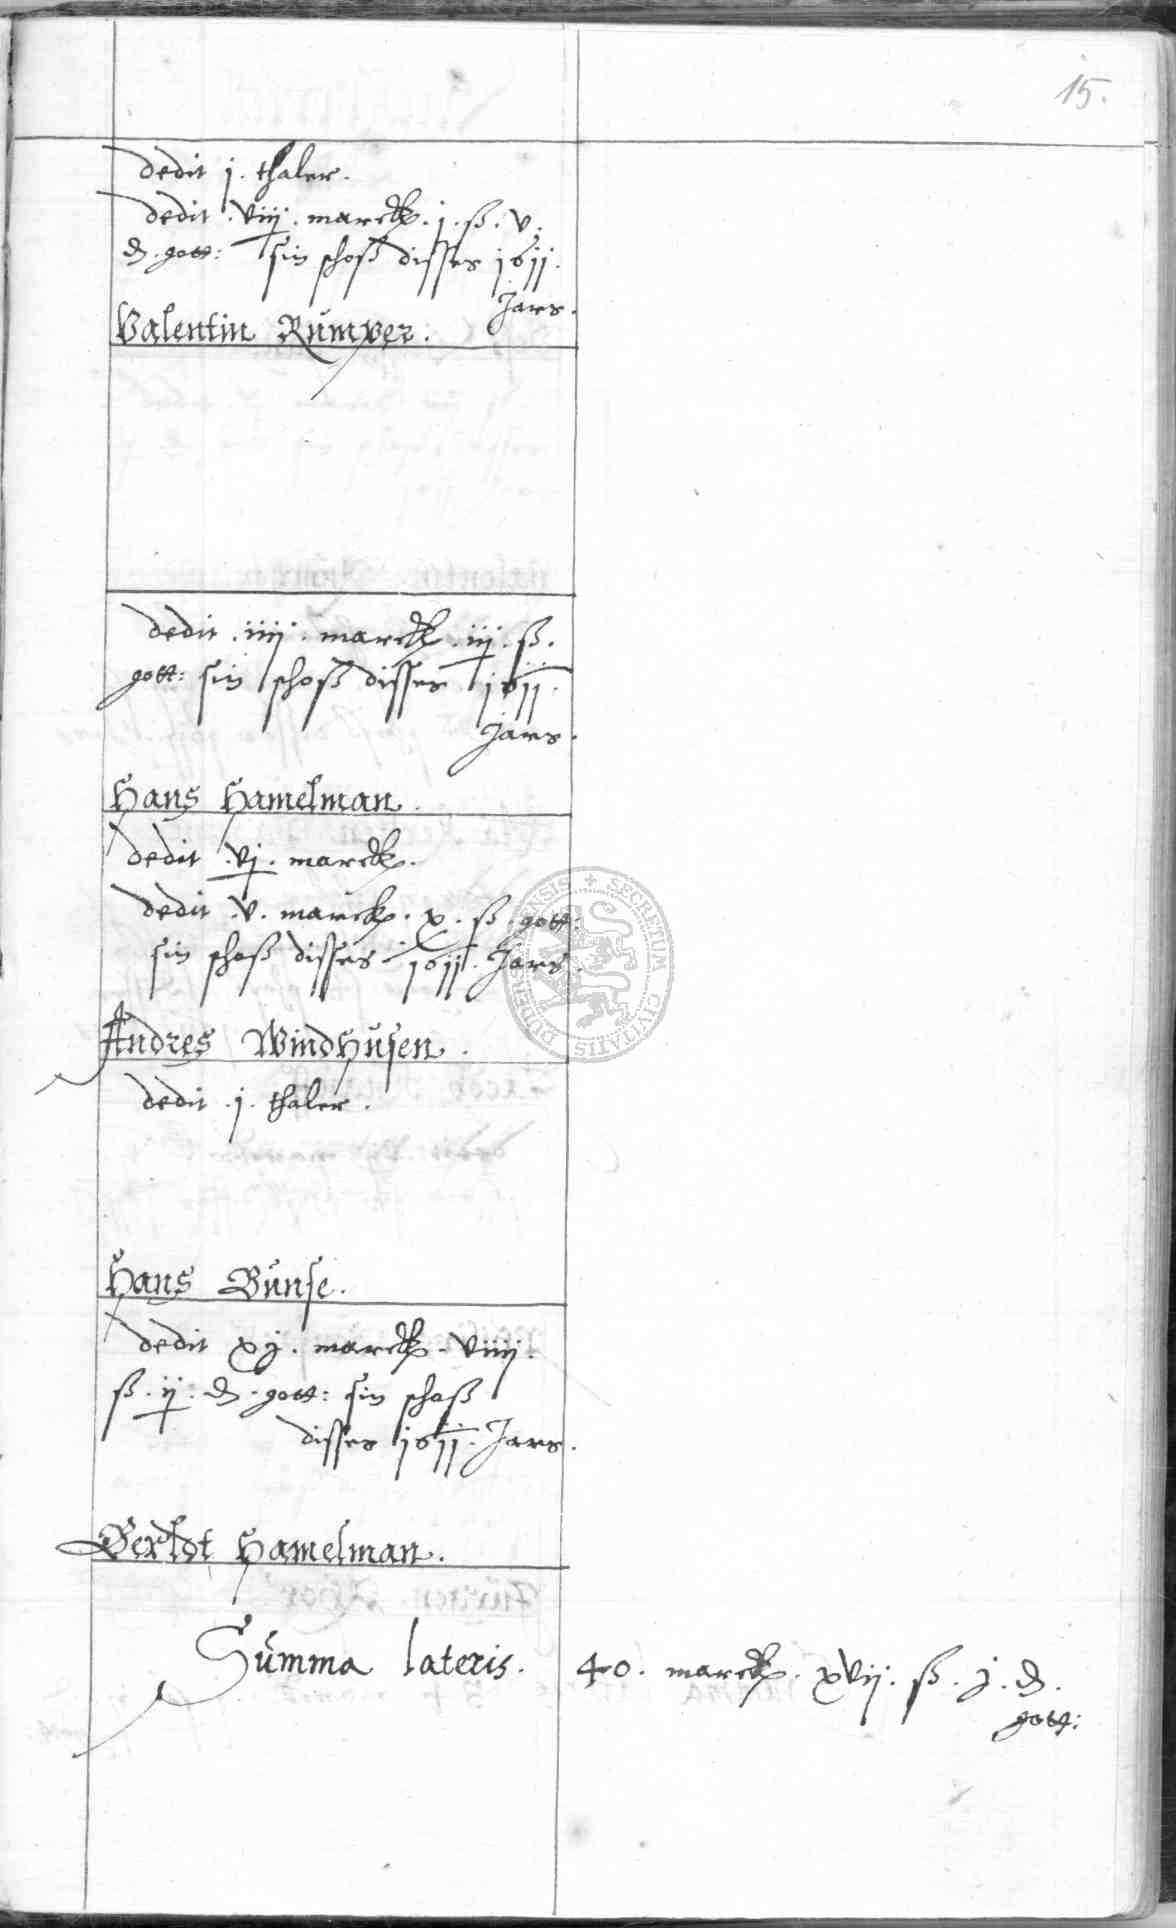 15.
dedit j. thaler.
dedit . viij . marck . j . ß . v .
₰ . gott: sin schoß disses 1611.
Jars.
Valentin Rümper.
dedit . iiij . marck . iij . ß .
gott: sin schoß disses 1611.
Jars.
Hans Hamelman.
dedit . vj . marck.
dedit . v . marck . x . ß . gott:
sin schoß disses 1611. Jars.
Andres Windhüsen.
dedit . j . thaler.
Hans Bünse.
dedit xj . marck . viiij .
ß . ij . ₰ . gott: sin schoß
disses 1611. Jars.
Bertlot Hamelman.
Sümma lateris. 40 . marck . xvij . ß . j . ₰ .
gott:
SECRETUM CIVITATIS DUDERSTADENSIS